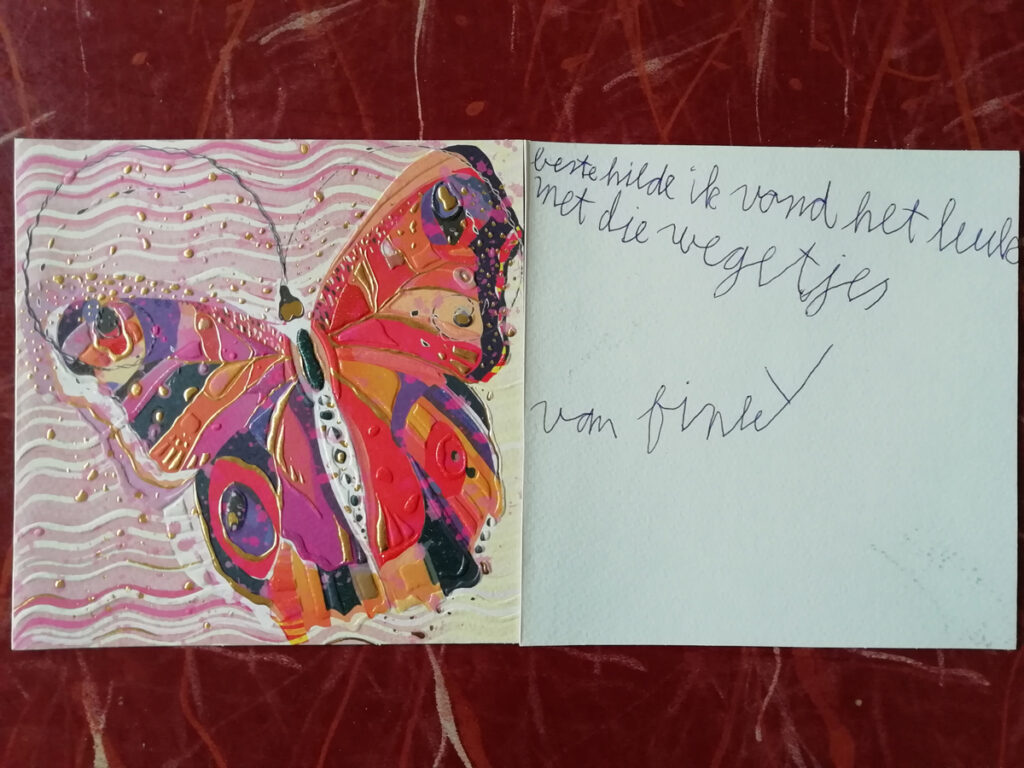 beste hilde ik vond het leuk
met die wegetjes
van finle